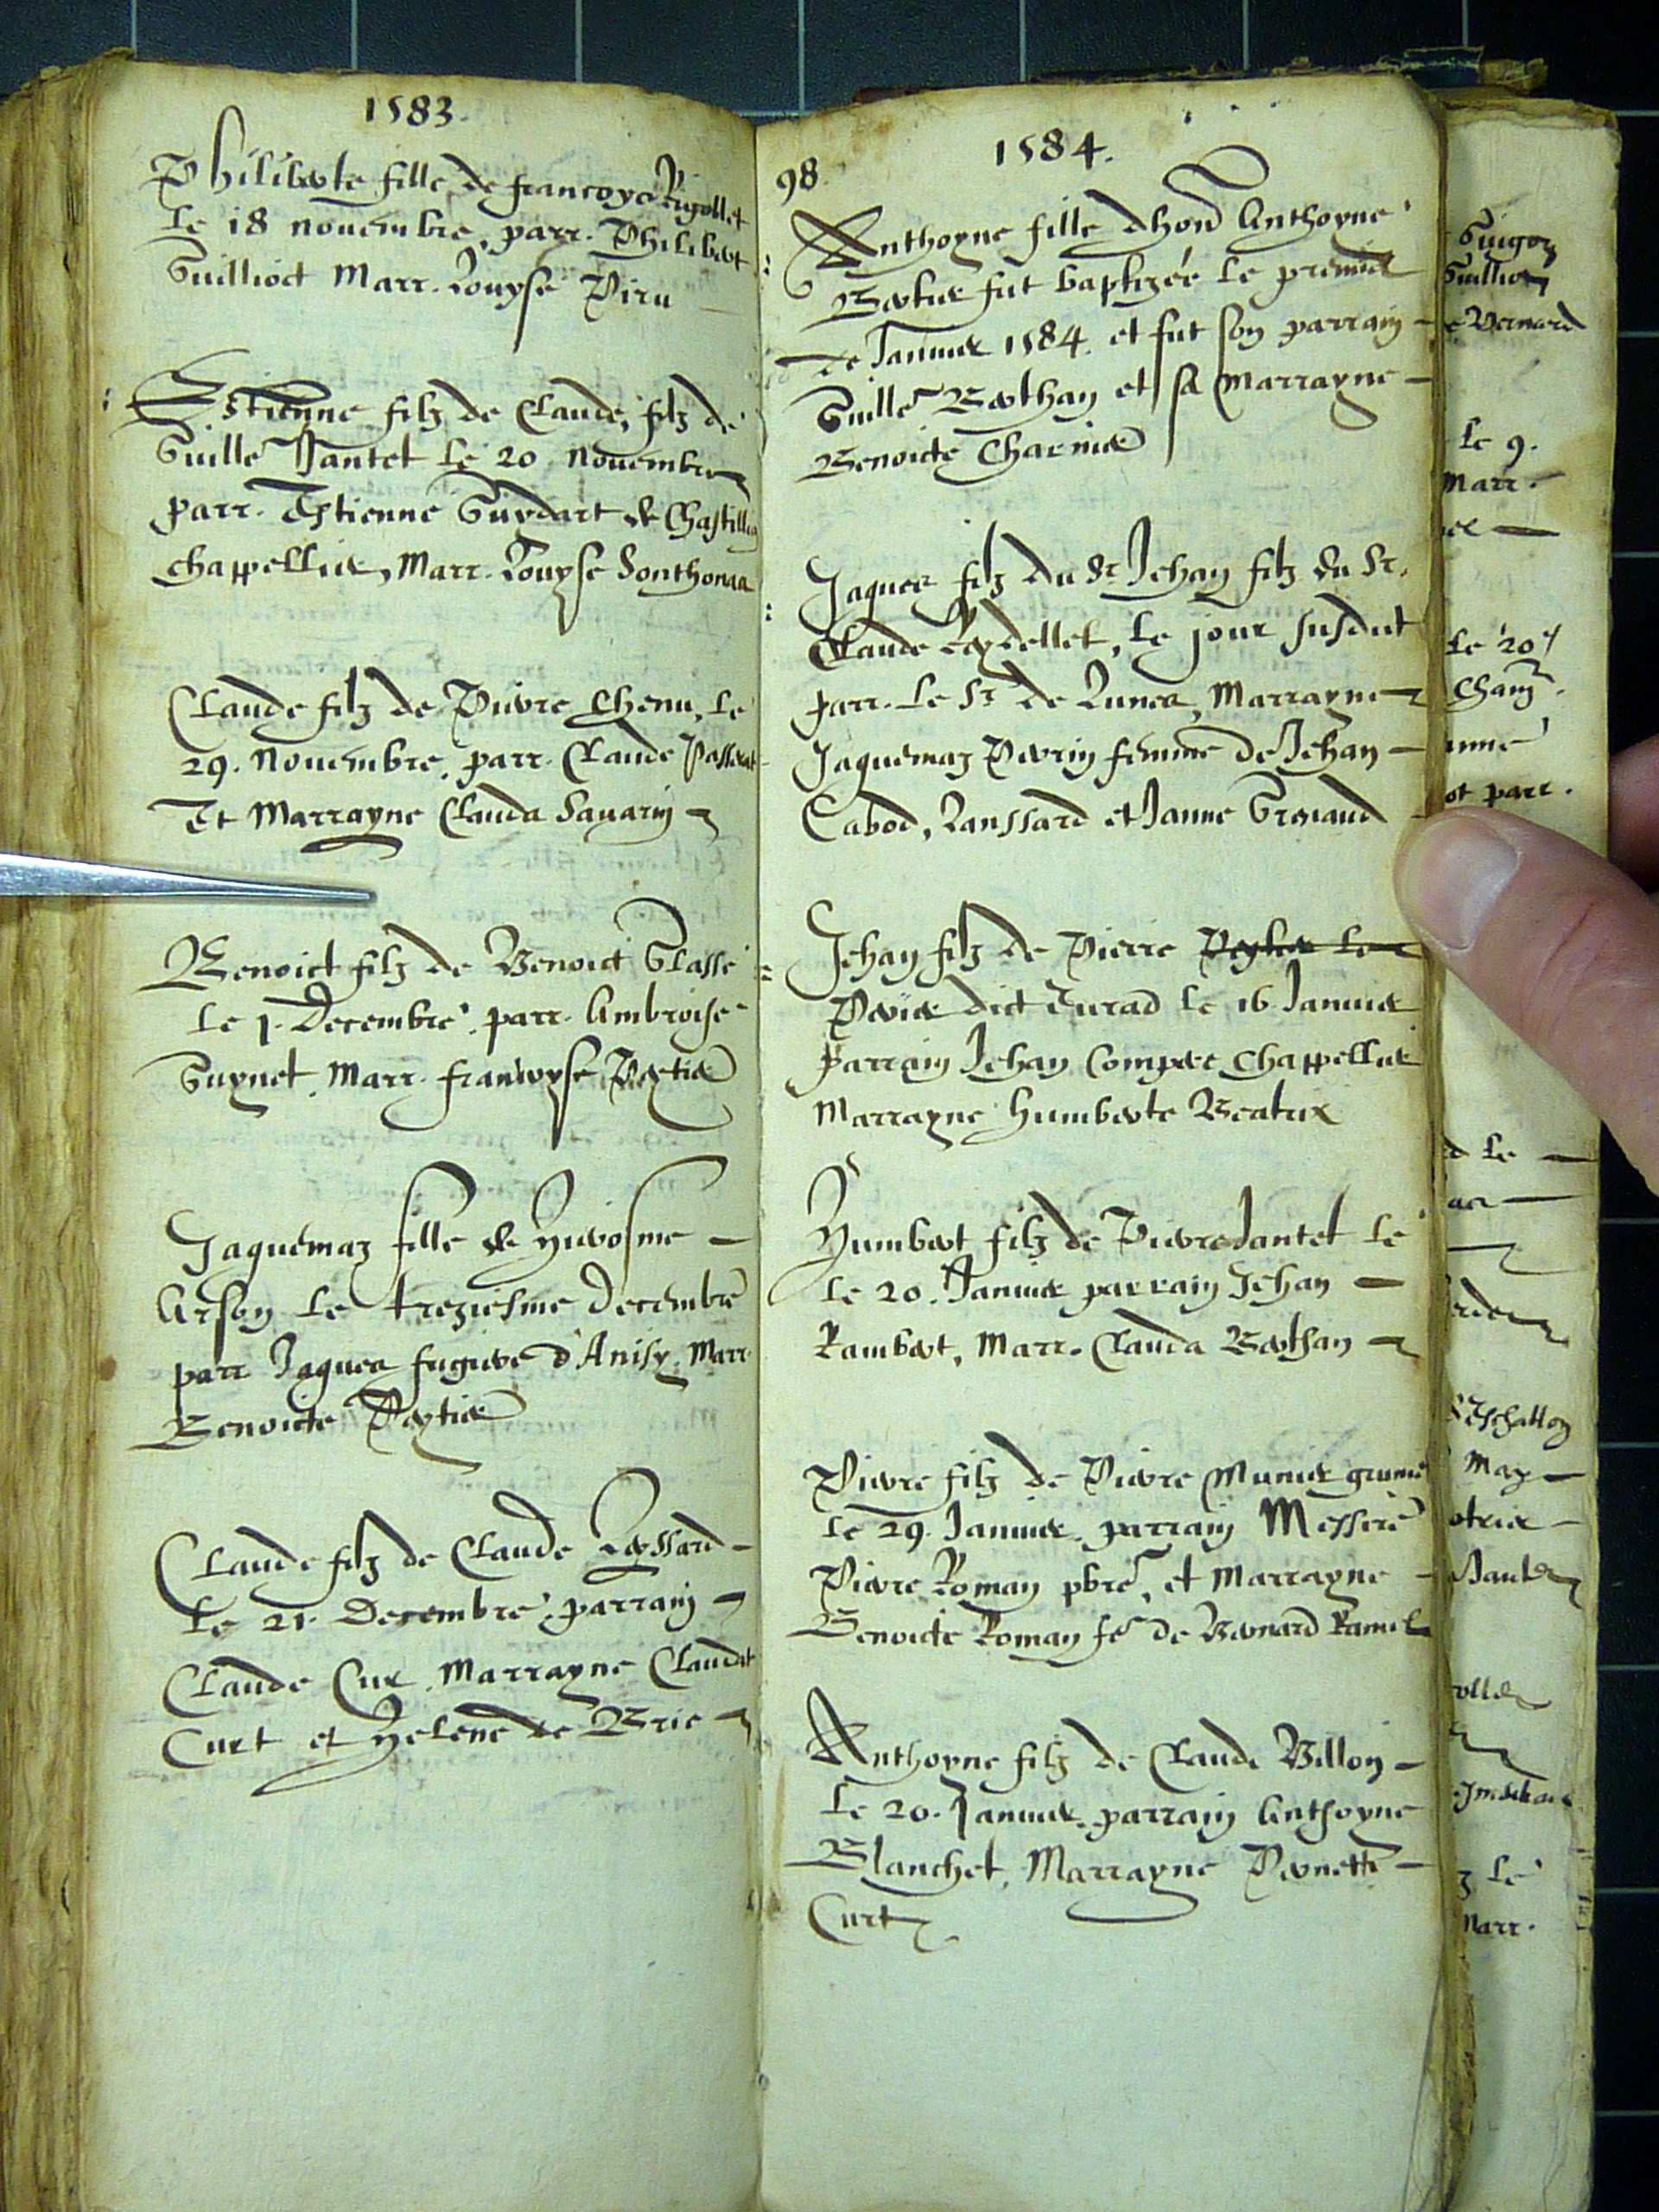 1583.
Philiberte fille de francoys Rigollet
le 18 nouembre, parr. Philibert
Guilliod Marr. Louyse Piru
Estienne filz de Claude, filz de
Guille Jantet le 20 nouembre
parr. Estienne Guydart de Chastillon
chappellier, Marr. Louyse Sonthonas
Claude filz de Pierre Chenu, le
29. Nouembre, parr. Claude Passerat
Et Marrayne Clauda Sauarin
Benoict filz de Benoict Glasse
le 1. Decembre, parr. Ambroise
Guynet, Marr. francoyse
Jaquemaz fille de Hierosme
Arson le treziesme Decembre
parr Jaques fugiere d'Anisy. Marr
Benoicte
Claude filz de Claude
le 21. Decembre, parrain
Claude Cur. Marrayne Claudat
Curt et Helene de Brie
98
1584.
Anthoyne fille dhon Anthoyne
fut baptizée le premier
de Januier 1584. et fut son parrain
Guille Berthan et sa Marrayne
Benoicte Charnier
Jaques filz du Sr Jehan filz du Sr.
Claude Reydellet, le jour susdict
parr. le Sr de Lunes, Marrayne
Jaquemaz Perrin femme de Jehan
Cabod, Lanssard et Janne
Jehan filz de Pierre
dict Curad le 16 Januier
Parrain Jehan Comper Chappellier
Marrayne Humberte Beatrix
Humbert filz de Pierre Jantet le
le 20. Januier parrain Jehan
Rambert, Marr. Clauda Berthan
Pierre filz de Pierre Munier
le 29. Januier, parrain Messire
Pierre Roman pbre, et Marrayne
Benoicte Roman fe de Bernard Ramel
Anthoyne filz de Claude Billon
le 20. Januier, parrain Anthoyne
Blanchet, Marrayne Pernette
Curt
Guigon
Bernard
le 9.
Marr.
le 20
parr.
d le
May
z le
Marr.